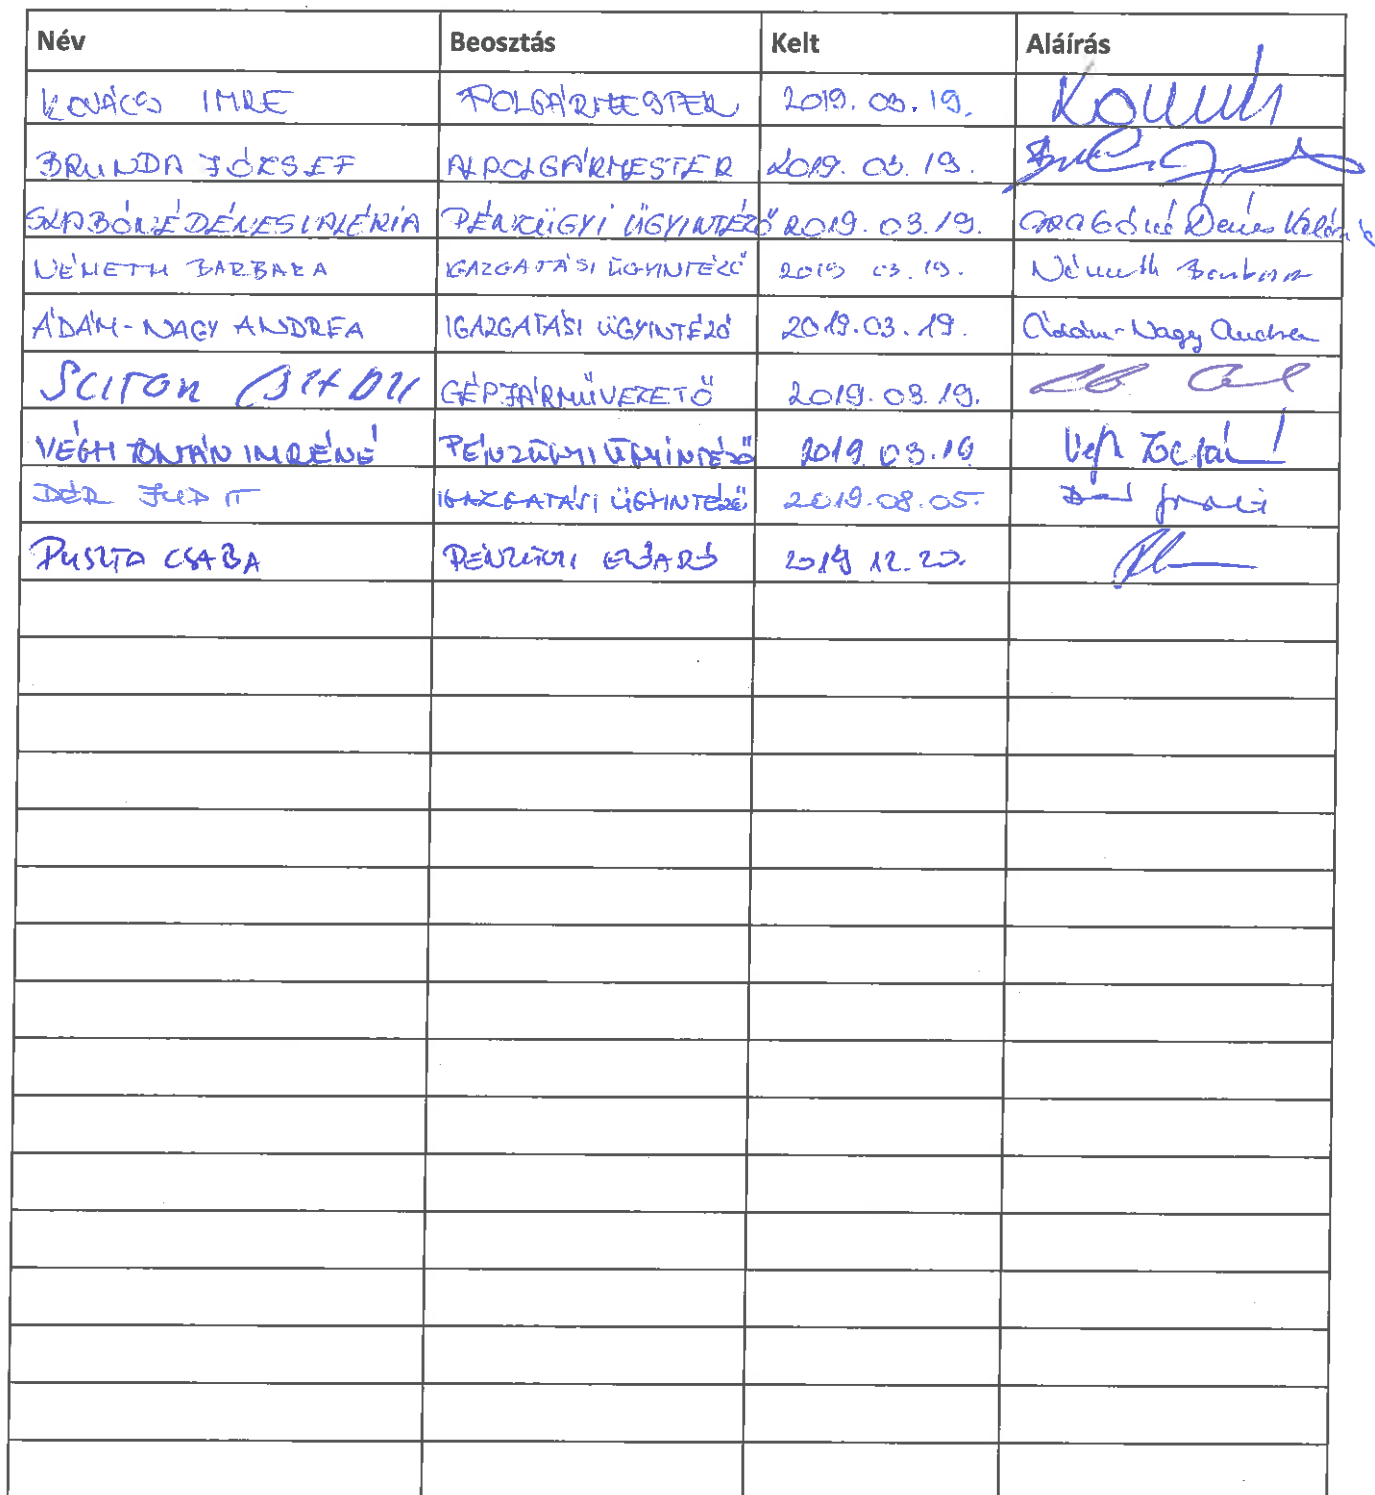 Név Beosztás Kelt Aláírás
KOVÁCS IMRE POLGÁRMESTER 2019. 03. 19. Kovács
BRUNDA JÓZSEF ALPOLGÁRMESTER 2019. 03. 19.
SZABÓNÉ DÉNES VALÉRIA PÉNZÜGYI ÜGYINTÉZŐ 2019. 03. 19. Szabóné Dénes Valéria
NÉMETH BARBARA IGAZGATÁSI ÜGYINTÉZŐ 2019 03. 19. Németh Barbara
ÁDÁM-NAGY ANDREA IGAZGATÁSI ÜGYINTÉZŐ 2019.03.19. Ádám-Nagy Andrea
GÉPJÁRMŰVEZETŐ 2019. 03. 19.
VÉGH ZOLTÁN IMRÉNÉ PÉNZÜGYI ÜGYINTÉZŐ 2019 03.19
DÉR JUDIT IGAZGATÁSI ÜGYINTÉZŐ 2019.08.05. Dér Judit
PUSZTA CSABA PÉNZÜGYI ELŐADÓ 2019 12. 20.